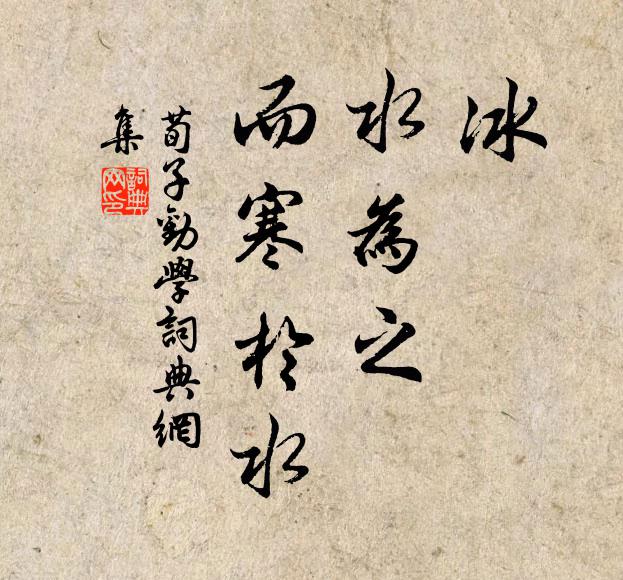 冰
水為之
而寒於水
荀子勸學詞典網
集
詞典
網印